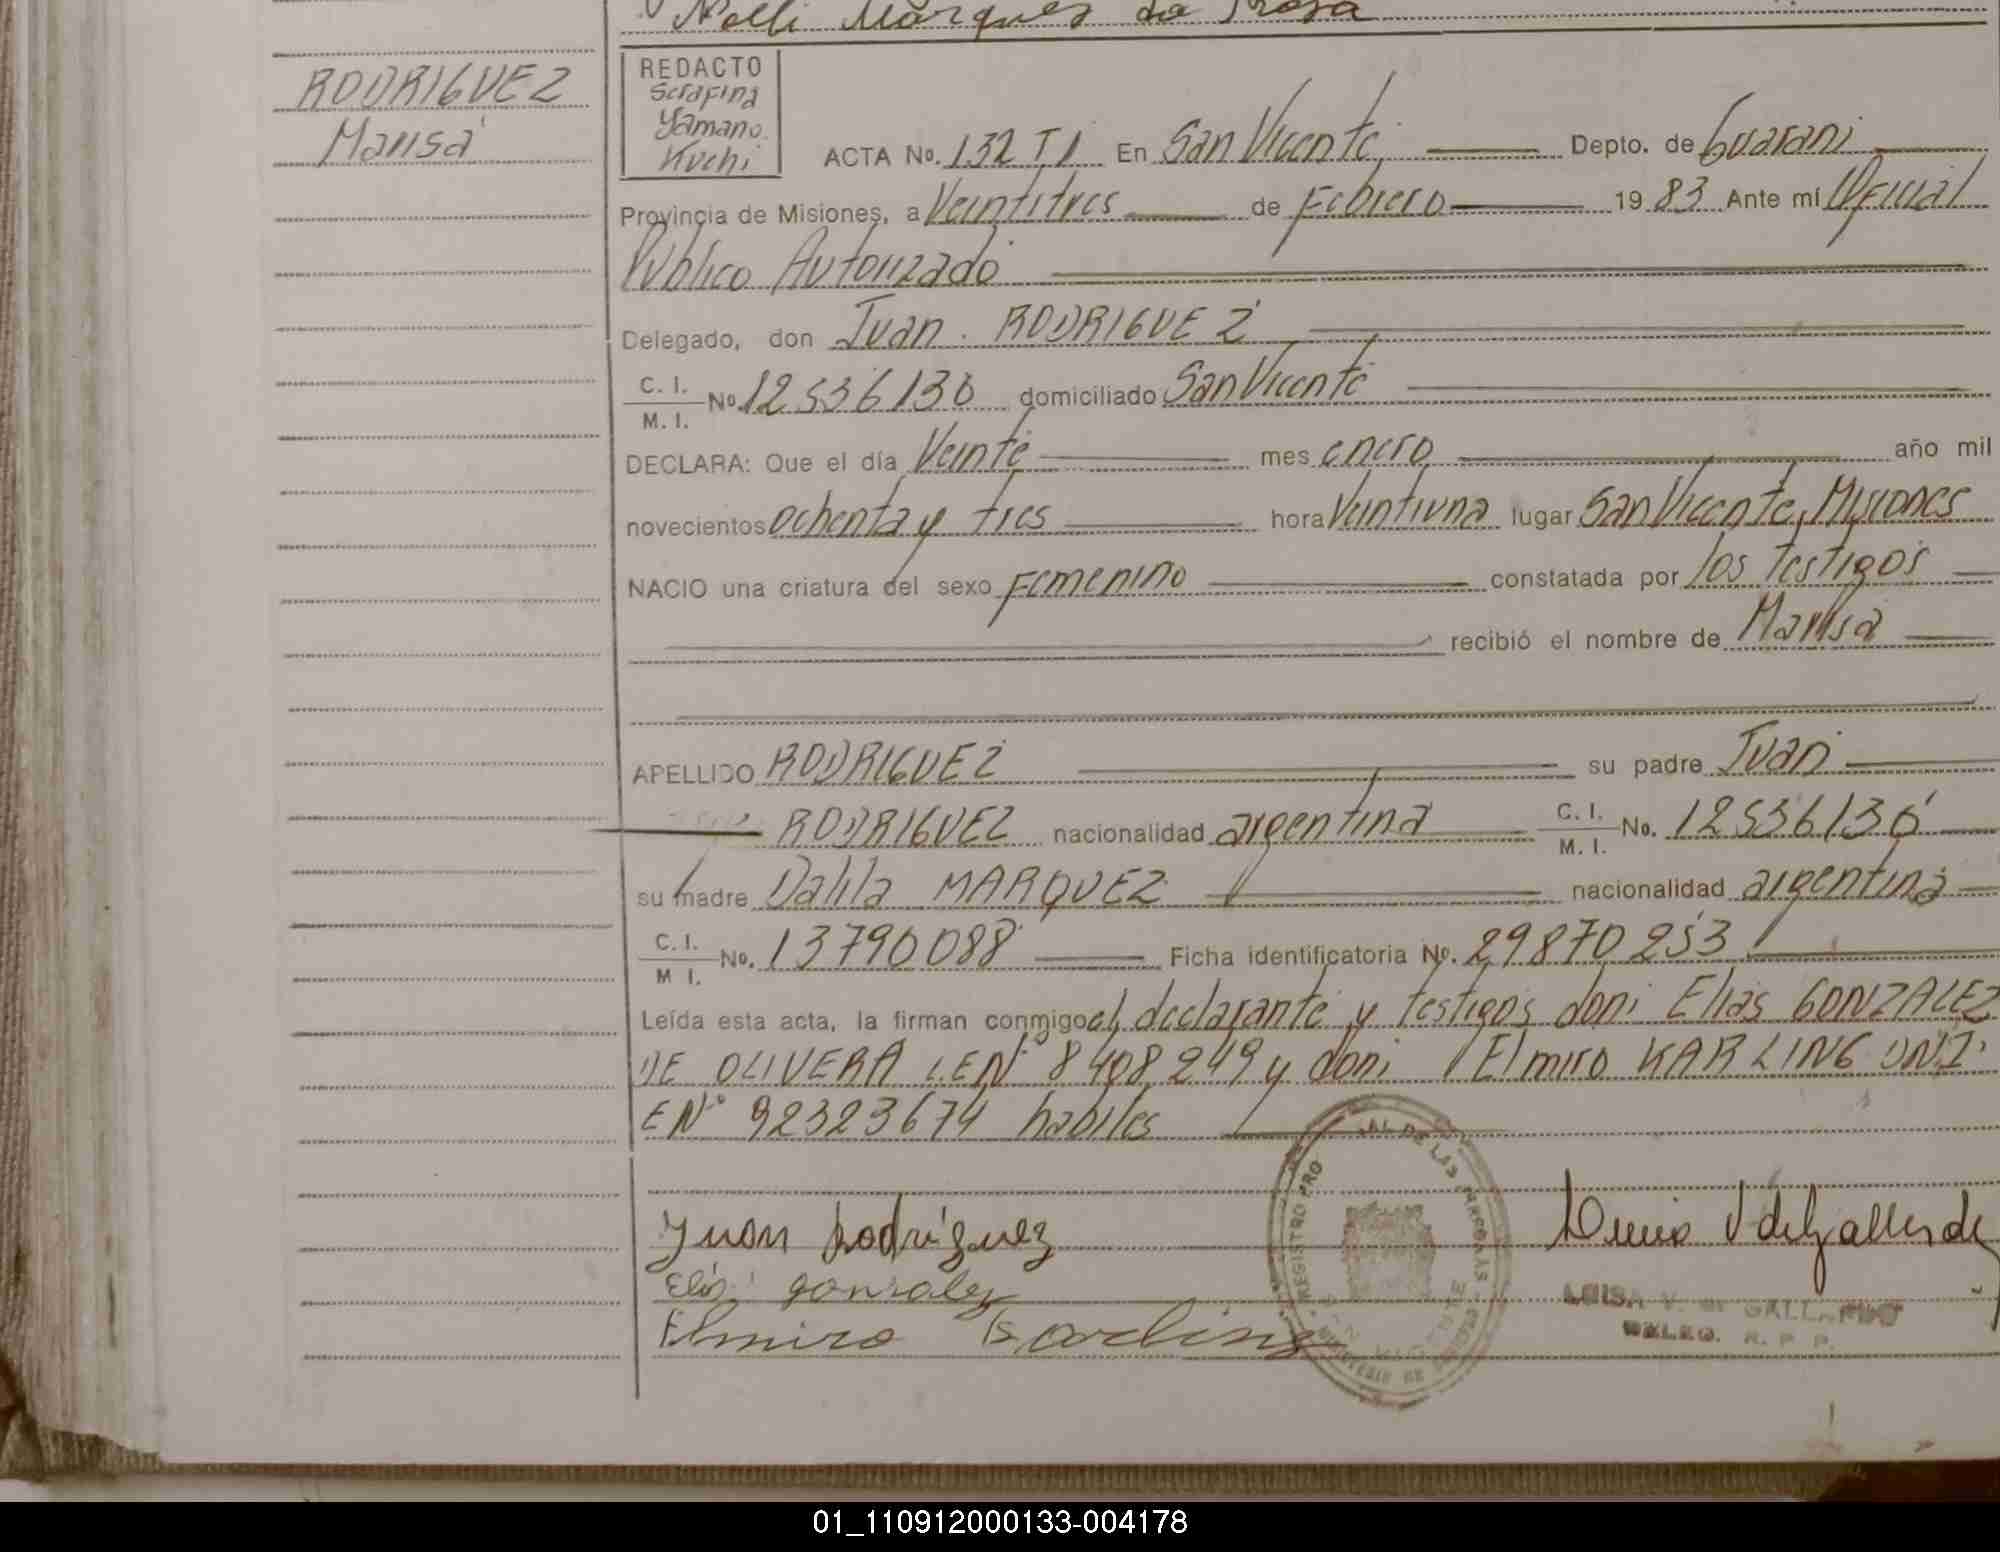 Nelli Marques da Rosa
RODRIGUEZ
Marisa
REDACTO
Serafina
Yamano
Kuchi
ACTA No. 132 T I En San Vicente Depto. de Guarani
Provincia de Misiones, a Veintitres de Febrero 19 83 Ante mí Oficial
Público Autorizado
Delegado, don Juan RODRIGUEZ
C. I.
M. I. No. 12536136 domiciliado San Vicente
DECLARA: Que el día Veinte mes enero año mil
novecientos ochenta y tres hora Veintiuna lugar San Vicente, Misiones
NACIO una criatura del sexo Femenino constatada por los testigos
recibió el nombre de Marisa
APELLIDO RODRIGUEZ su padre Juan
RODRIGUEZ nacionalidad argentina C. I.
M. I. No. 12536136
su madre Dalila MARQUEZ nacionalidad argentina
C. I.
M I. No. 13790088 Ficha identificatoria No. 29870253
Leída esta acta, la firman conmigo el declarante y testigos don: Elias GONZALEZ
DE OLIVERA L.E.Nº 8408249 y don: Elmiro KARLING DNI.
E Nº 92323674 habiles
Juan Rodríguez
Elias gonzalez
Elmiro Karling
LUISA V. de GALLARDO
DELEG. R. P. P.
01_110912000133-004178